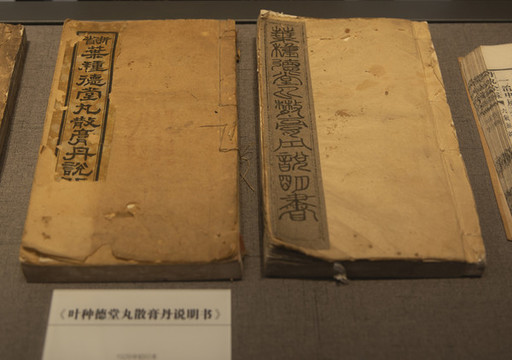 葉種德堂丸散膏丹說
葉種德堂丸散膏丹說明書
《叶种德堂丸散膏丹说明书》